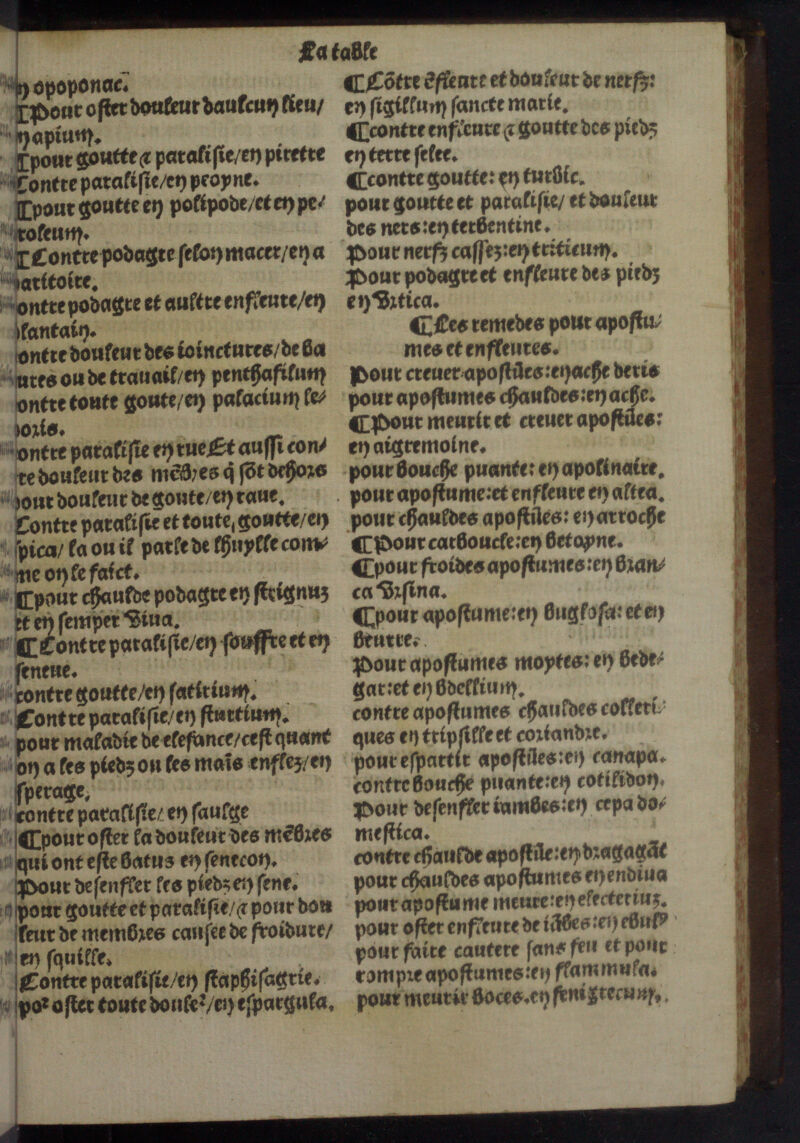 La table
en opoponac.
Pour oster douleur daulcun lieu/
en apium.
pour goutte & paralisie/en piretre
Contre paralisie/en peopne.
pour goutte en polipode/et en pe-
troleum.
Contre podagre selon macer/en a
paritoire.
contre podagre et aultre enfleure/en
plantain.
contre douleur des ioinctures/de ba
tures ou de trauail/en penthafilum
contre toute goute/en palacium le-
poris.
contre paralisie en rue Et aussi con-
tre douleur des mēbres q̄ sōt dehors
pour douleur de goute/en raue.
Contre paralisie et toute goutte/en
spica/la ou il parle de lhuylle com-
me on le faict.
pour chaulde podagre en strignus
et en semper viua.
Contre paralisie/en souffre et en
seneue.
contre goutte/en satirium.
Contre paralisie/en sturtium.
pour maladie de elefance/cest quant
on a les piedz ou les mais enflez/en
sperage.
contre paralisie/en saulge
pour oster la douleur des mēbres
qui ont este batus en senecon.
Pour desenfler les piedz en sene.
pour goutte et paralisie/& pour dou
leur de membres causee de froidure/
en squille.
Contre paralisie/en staphisagrie.
po² oster toute doule²/en espargula.
Cōtre ēfleure et douleur de nerfz:
en sigillum sancte marie.
contre enfleure & goutte des piedz
en terre selee.
contre goutte: en turbic.
pour goutte et paralisie/ et douleur
des ners:en terbentine.
Pour nerfz cassez:en triticum.
Pour podagre et enfleure des piedz
en vrtica.
Les remedes pour apostu-
mes et enfleures.
Pour creuer apostūes:en ache deris
pour apostumes chauldes:en ache.
Pour meurir et creuer apostūes:
en aigremoine.
pour bouche puante: en apolinaire.
pour apostume:et enfleure en altea.
pour chauldes apostūes: en arroche
Pour carboucle:en betoyne.
pour froides apostumes:en bran-
ca vrsina.
pour apostume:en buglosa: et en
beurre.
Pour apostumes moytes: en bede-
gar:et en bdellium.
contre apostumes chauldes colleri-
ques en tripsille et coriandre.
pour espartir apostūes:en canapa.
contre bouche puante:en cotilidon.
Pour desenfler iambes:en cepa do-
mestica.
contre chaulde apostūe:en dragagāt
pour chauldes apostumes en endiua
pour apostume meure:en electerius.
pour oster enfleure de iābes:en ebulꝰ
pour faire cautere sans feu et pour
rompre apostumes:en flammula.
pour meurir boces.en fenigrecum.